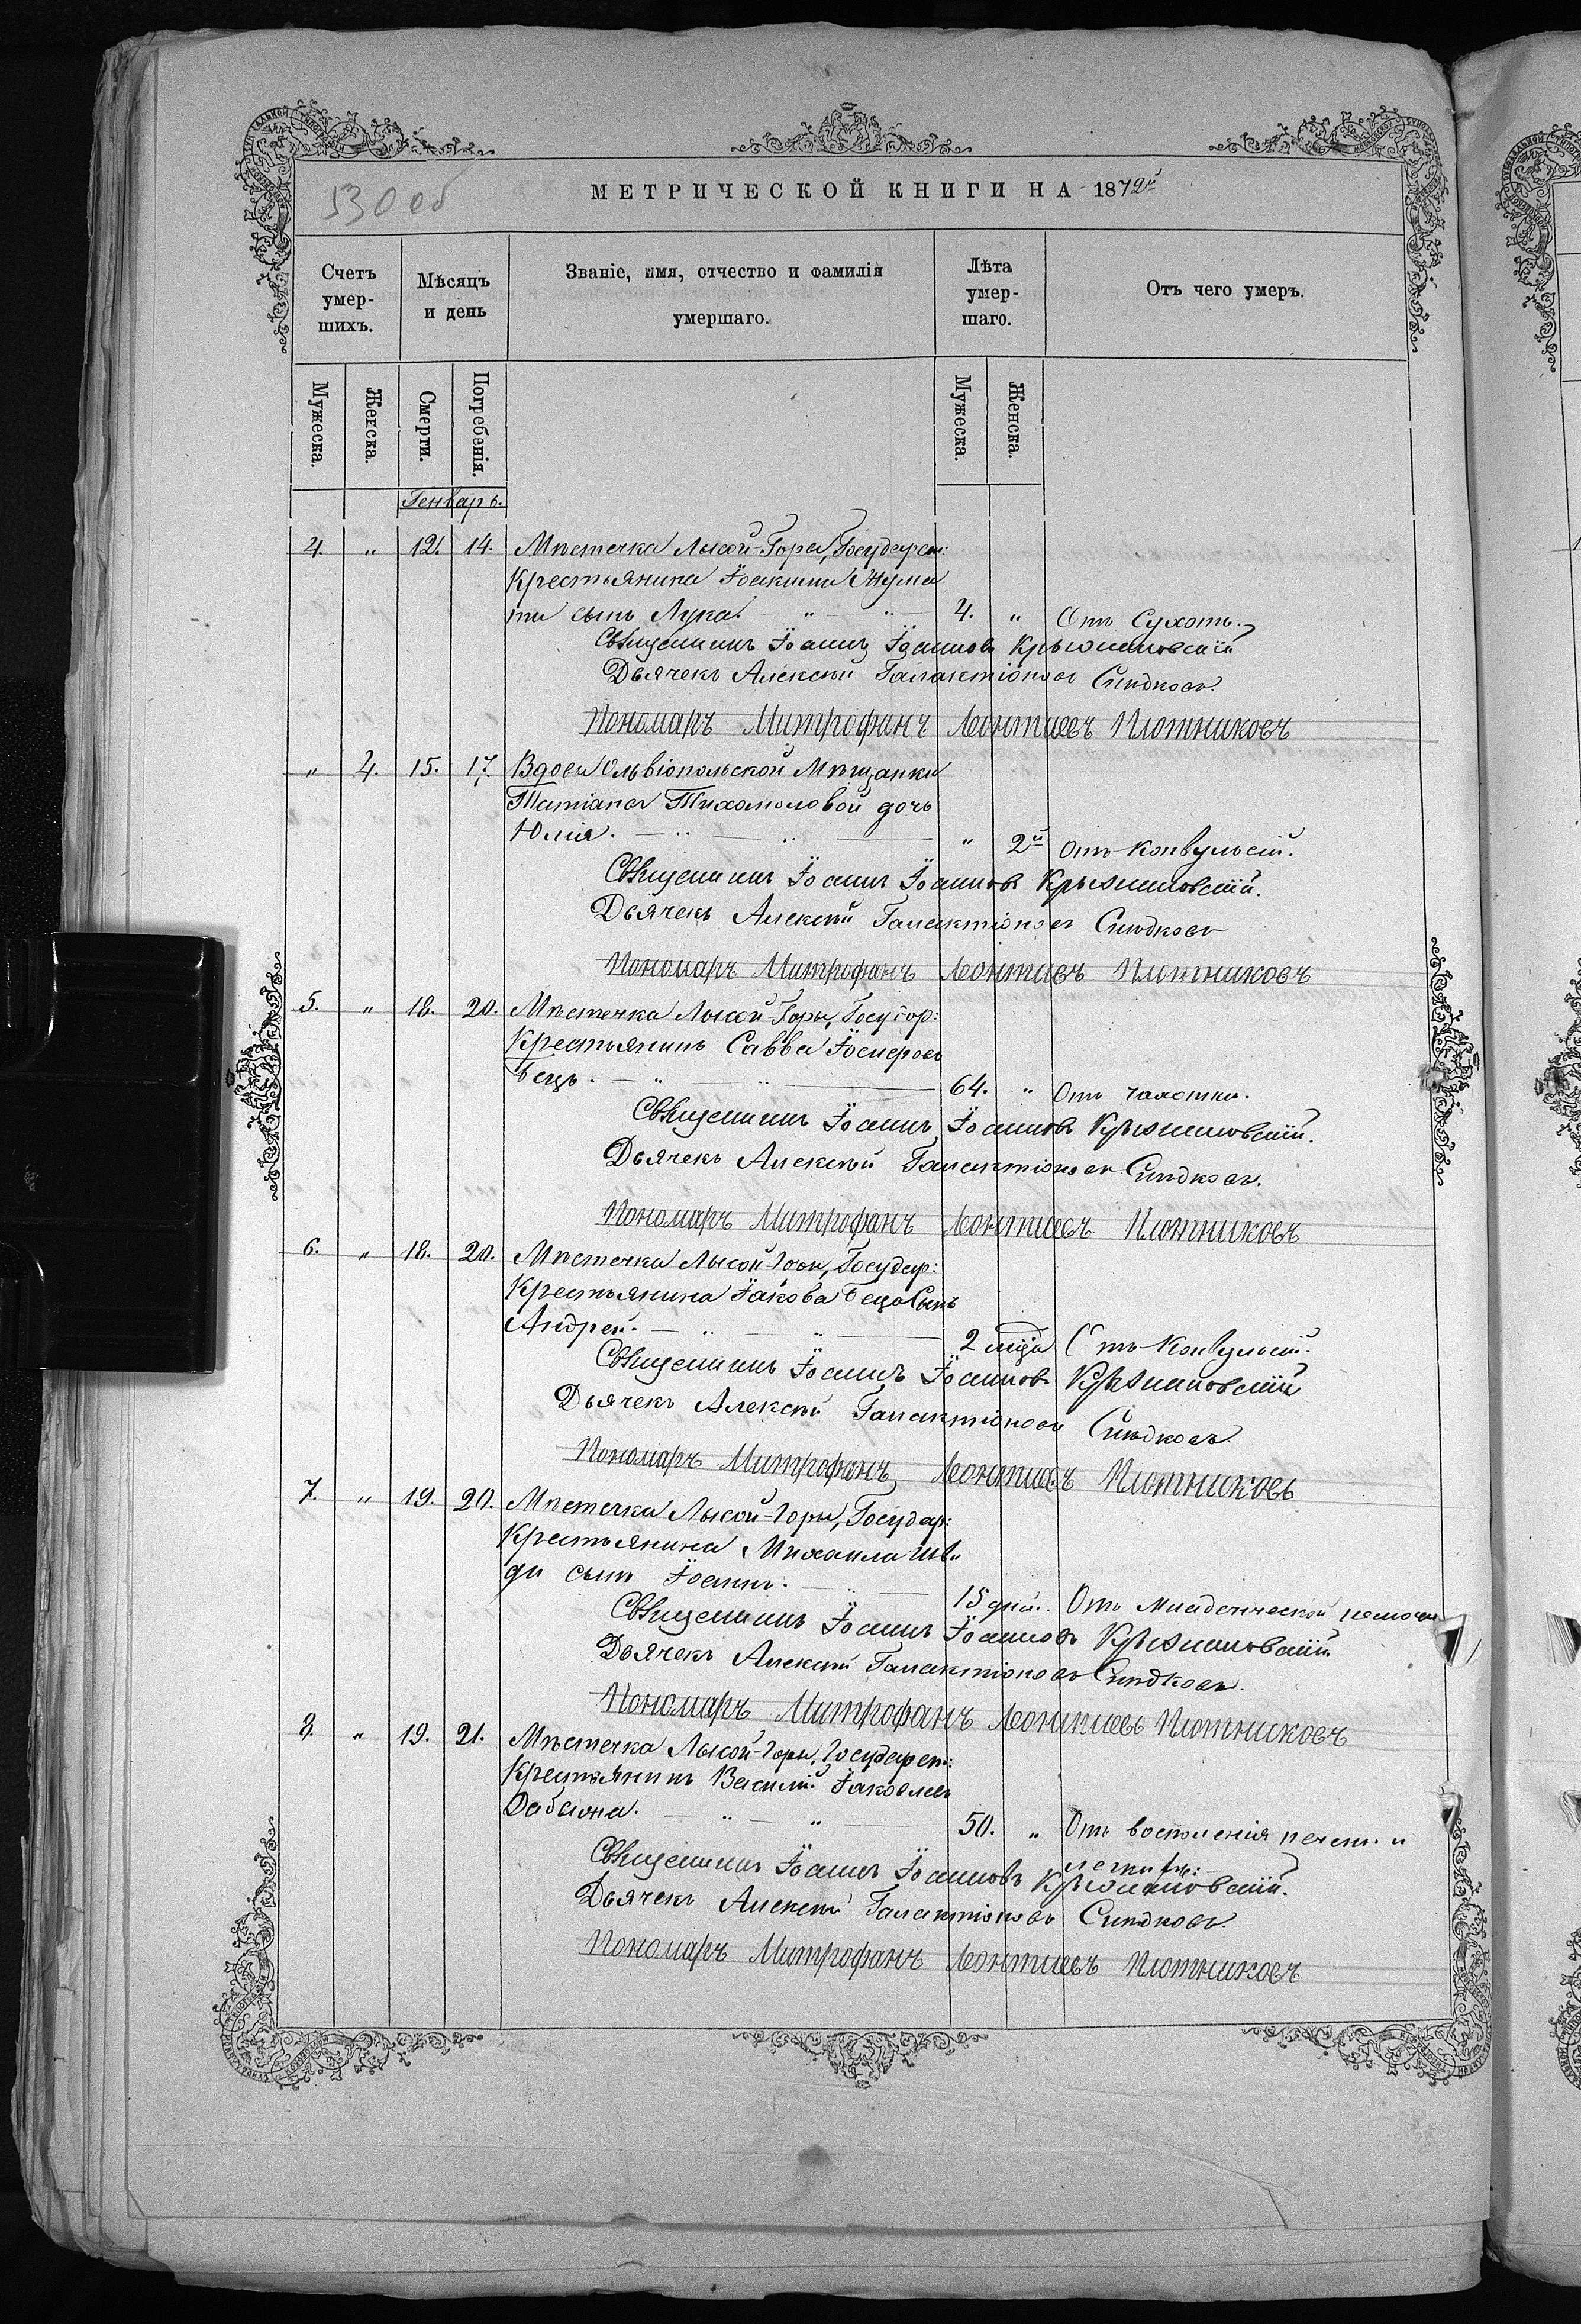 530 об
МЕТРИЧЕСКОЙ КНИГИ НА 1872й
Счетъ умер-шихъ.
Мѣсяцъ и день
Званіе, имя, отчество и фамилія умершаго.
Лѣта умер-шаго.
Отъ чего умеръ.
Мужеска.
Женска.
Смерти.
Погребенія.
Мужеска.
Женска.
Генварь.
4. " 12. 14. Мѣстечка Лысой-Горы, Государст:
Крестьянина Іоакима
сынъ Лука. 4. " Отъ Сухотъ.
Священникъ Іоаннъ Іоанновъ Крыжановскій
Дьячекъ Алексѣй Галактіоновъ
Пономарь Митрофанъ Леонтіевъ Плотниковъ
" 4. 15. 17. Вдовы Ольвіопольской Мѣщанки
Татіаны Тихомоловой дочь
Юлія. " 2й Отъ Конвульсій.
Священникъ Іоаннъ Іоанновъ Крыжановскій.
Дьячекъ Алексѣй Галактіоновъ
Пономарь Митрофанъ Леонтіевъ Плотниковъ
5. " 18. 20. Мѣстечка Лысой-Горы, Государ:
Крестьянинъ Савва Іосифовъ
Бецъ. 64. " Отъ чахотки.
Священникъ Іоаннъ Іоанновъ Крыжановскій.
Дьячекъ Алексѣй Галактіоновъ
Пономарь Митрофанъ Леонтіевъ Плотниковъ
6. " 18. 20. Мѣстечка Лысой-Горы, Государ:
Крестьянина Іакова Беца Сынъ
Андрей. 2 мца Отъ Конвульсій.
Священникъ Іоаннъ Іоанновъ Крыжановскій
Дьячекъ Алексѣй Галактіоновъ
Пономарь Митрофанъ Леонтіевъ Плотниковъ
7. " 19. 20. Мѣстечка Лысой-Горы, Государ:
Крестьянина Михаила
сынъ Іоаннъ. 15 дней. Отъ Младенческой немочи
Священникъ Іоаннъ Іоанновъ Крыжановскій
Дьячекъ Алексѣй Галактіоновъ
Пономарь Митрофанъ Леонтіевъ Плотниковъ
8. " 19. 21. Мѣстечка Лысой-Горы, Государст:
Крестьянинъ Василій Іаковлевъ
50. " Отъ воспаленія печени и
легкихъ:
Священникъ Іоаннъ Іоанновъ Крыжановскій.
Дьячекъ Алексѣй Галактіоновъ
Пономарь Митрофанъ Леонтіевъ Плотниковъ